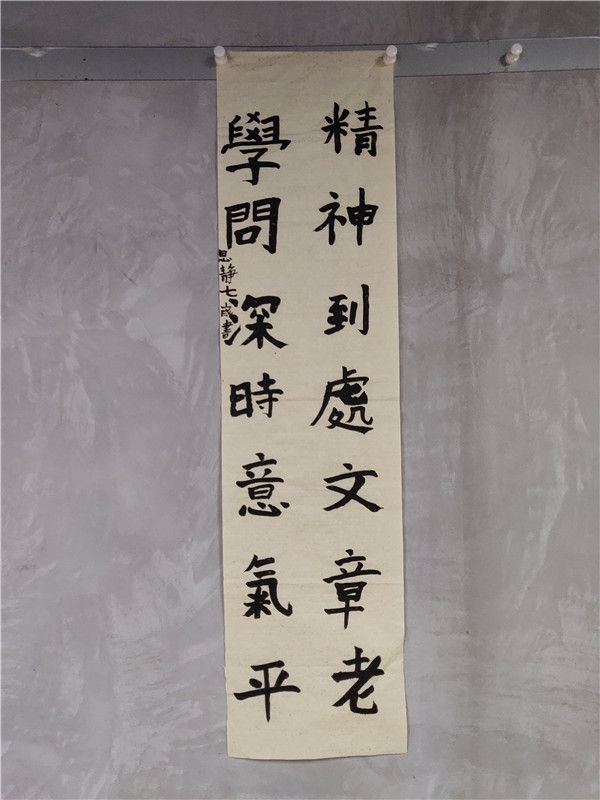 精神到處文章老
學問深時意氣平
思静七歲書